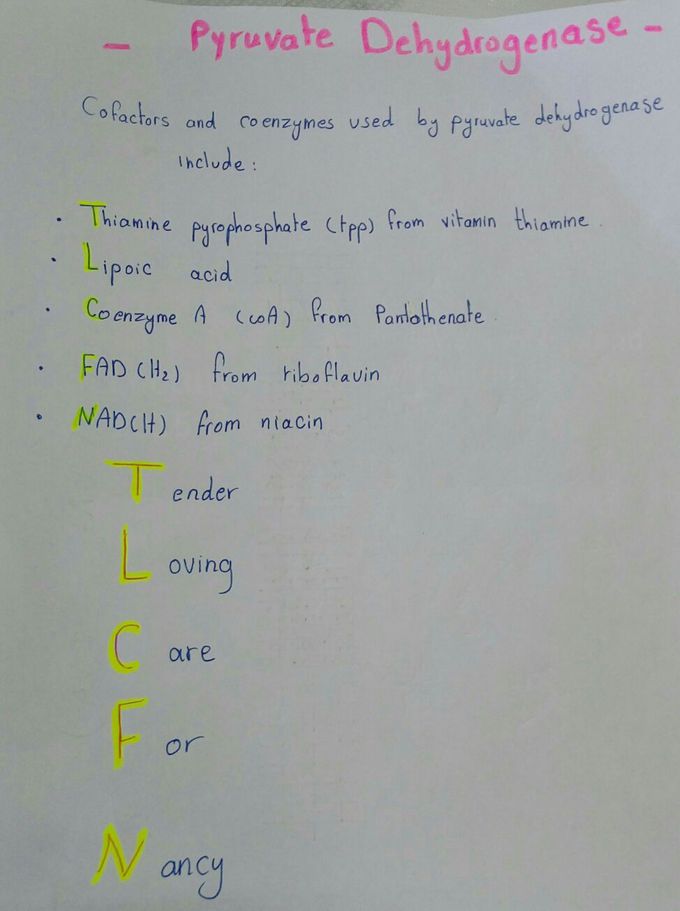 - Pyruvate Dehydrogenase -
Cofactors and coenzymes used by pyruvate dehydrogenase
include:
• Thiamine pyrophosphate (tpp) from vitamin thiamine.
• Lipoic acid
• Coenzyme A (coA) from Pantothenate.
• FAD(H2) from riboflavin
• NAD(H) from niacin
Tender
Loving
Care
For
Nancy